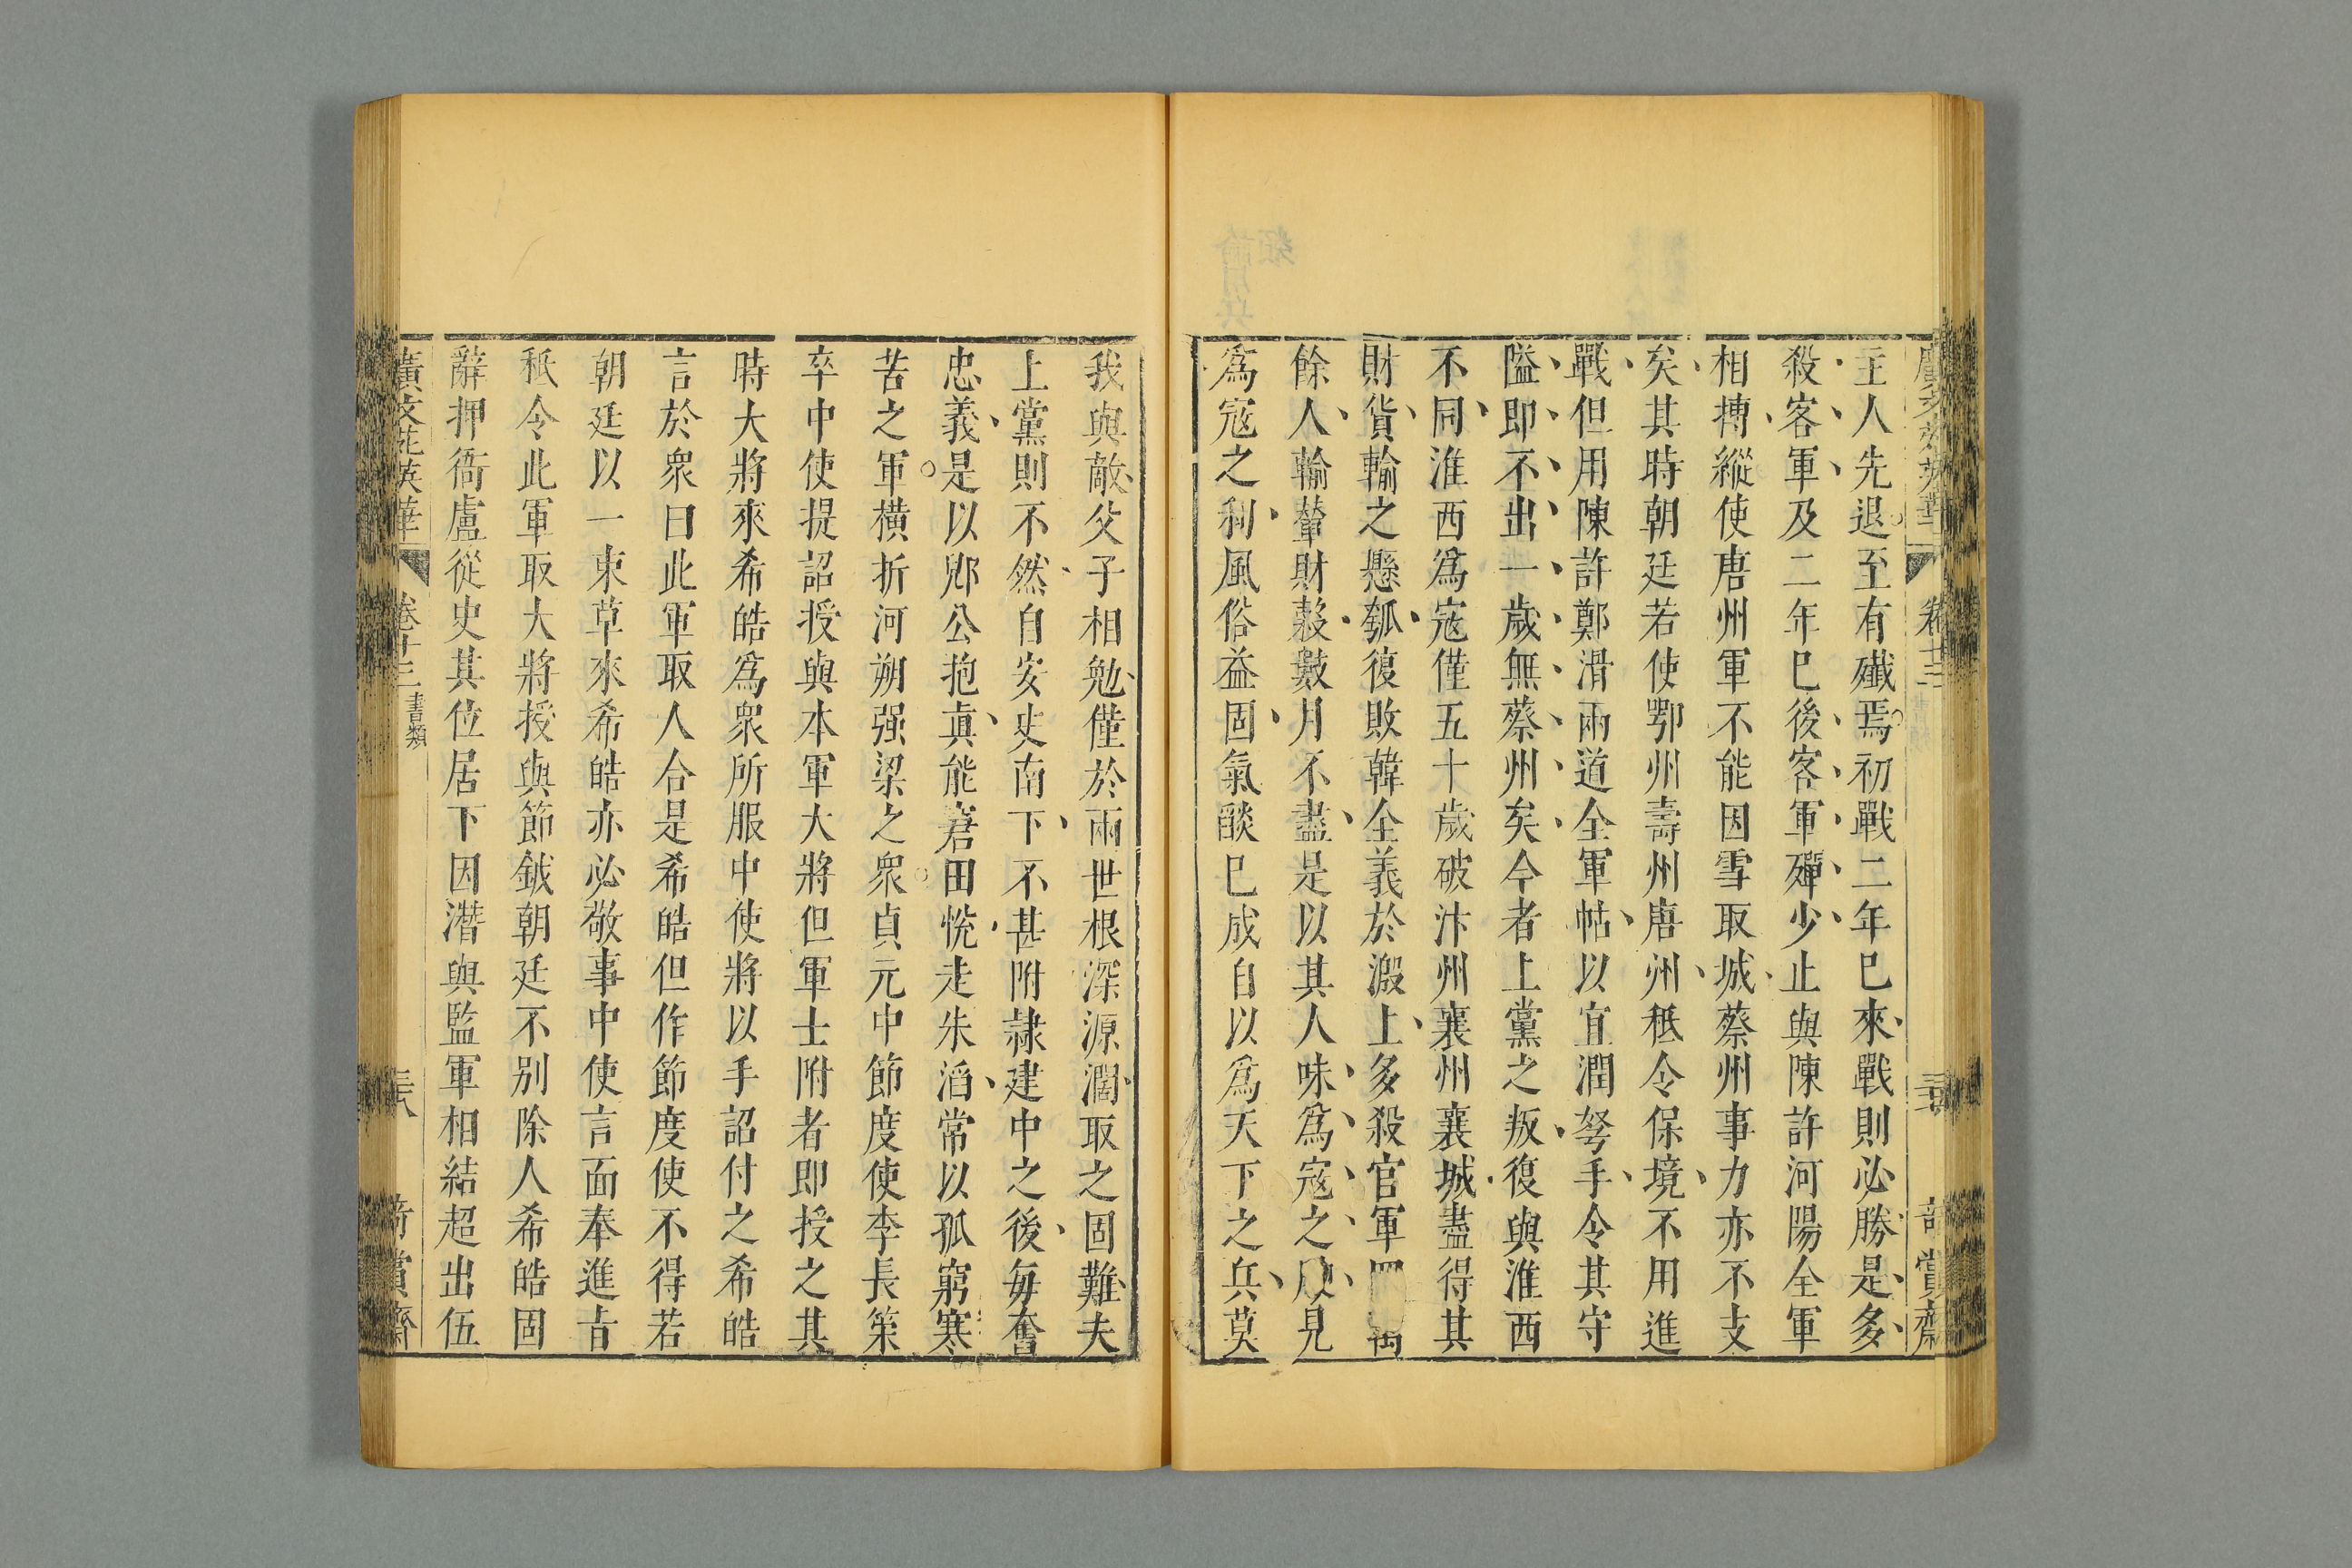 主人先退至有殲焉初戰二年巳來戰則必勝是多
殺客軍及二年巳後客軍殫少止與陳許河陽全軍
相搏縱使唐州軍不能因雪取城蔡州事力亦不支
矣其時朝廷若使鄂州壽州唐州秪令保境不用進
戰但用陳許鄭滑兩道全軍帖以宣潤弩手令其守
隘即不出一歲無蔡州矣今者上黨之叛復與淮西
不同淮西爲寇僅五十歲破汴州襄州襄城盡得其
財貨輸之懸瓠復敗韓全義於溵上多殺官軍四萬
餘人輸輦財穀數月不盡是以其人味爲寇之見
爲寇之利風俗益固氣燄巳成自以爲天下之兵莫
我與敵父子相勉僅於兩世根深源濶取之固難夫
上黨則不然自安史南下不甚附隷建中之後每奮
忠義是以郳公抱真能窘田悅走朱滔常以孤窮寒
苦之軍橫折河朔强梁之衆貞元中節度使李長策
卒中使提詔授與本軍大將但軍士附者即授之其
時大將來希皓爲衆所服中使將以手詔付之希皓
言於衆曰此軍取人合是希皓但作節度使不得若
朝廷以一束草來希皓亦必敬事中使言面奉進吉
秪令此軍取大將授與節鉞朝廷不別除人希皓固
辭押衙盧從史其位居下因潛與監軍相結超出伍
廣文苑英華 卷十三 書類 奇賞齋